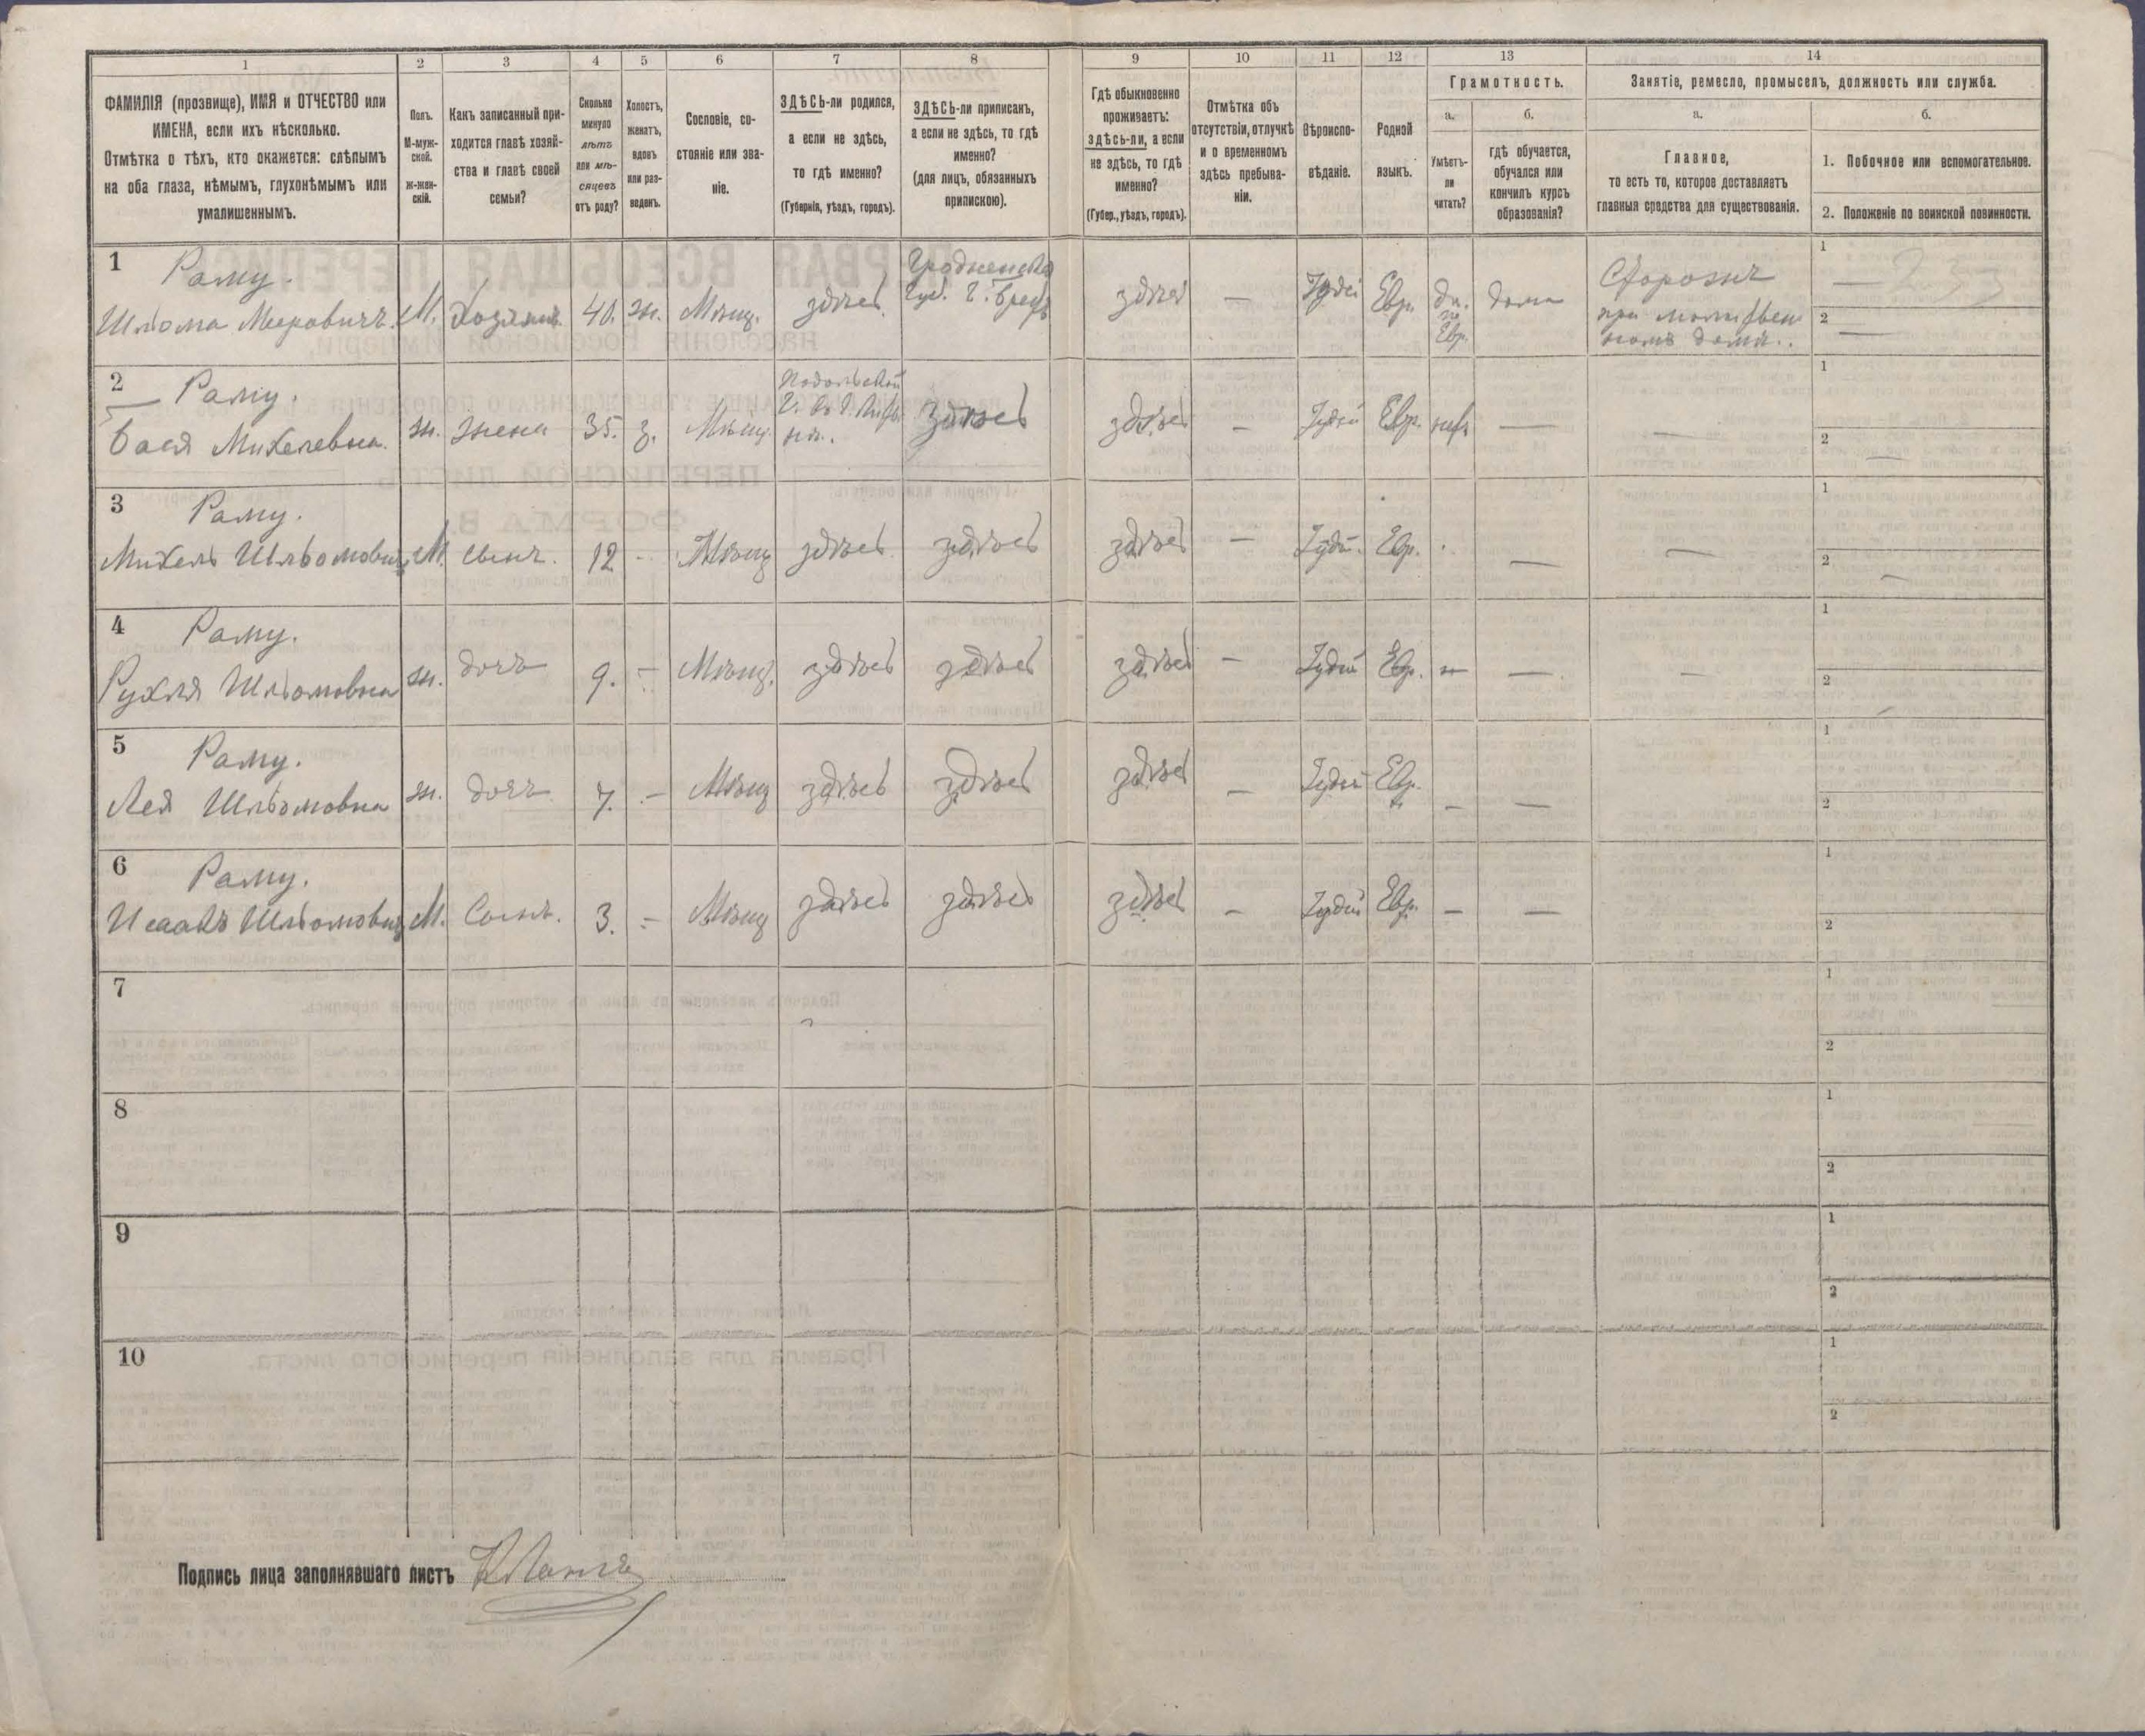 1 2 3 4 5 6 7 8 9 10 11 12 13 14
ФАМИЛІЯ (прозвище), ИМЯ и ОТЧЕСТВО или
ИМЕНА, если ихъ нѣсколько.
Отмѣтка о тѣхъ, кто окажется: слѣпымъ
на оба глаза, нѣмымъ, глухонѣмымъ или
умалишеннымъ.
Полъ.
М-муж-
ской.
ж-жен-
скій.
Какъ записанный при-
ходится главѣ хозяй-
ства и главѣ своей
семьи?
Сколько
минуло
лѣтъ
или мѣ-
сяцевъ
отъ роду?
Холостъ,
женатъ,
вдовъ
или раз-
веденъ.
Сословіе, со-
стояніе или зва-
ніе.
ЗДѢСЬ-ли родился,
а если не здѣсь,
то гдѣ именно?
(Губернія, уѣздъ, городъ).
ЗДѢСЬ-ли приписанъ,
а если не здѣсь, то гдѣ
именно?
(для лицъ, обязанныхъ
припискою).
Гдѣ обыкновенно
проживаетъ:
здѣсь-ли, а если
не здѣсь, то гдѣ
именно?
(Губер., уѣздъ, городъ).
Отмѣтка объ
отсутствіи, отлучкѣ
и о временномъ
здѣсь пребыва-
ніи.
Вѣроиспо-
вѣданіе.
Родной
языкъ.
Грамотность.
а.
Умѣетъ-
ли
читать?
б.
гдѣ обучается,
обучался или
кончилъ курсъ
образованія?
Занятіе, ремесло, промыселъ, должность или служба.
а.
Главное,
то есть то, которое доставляетъ
главныя средства для существованія.
б.
1. Побочное или вспомогательное.
2. Положеніе по воинской повинности.
1 Раму.
Шльома Мееровичъ. М. Хозяинъ 40. ж. Мѣщ. здѣсь
Гродненской
Губ. Г. Брестъ
здѣсь — Іудей Евр. да. по Евр. дома
Сторожъ
при молитвен
номъ домѣ.
1 —
2 —
2 Раму.
Бася Михелевна. ж. жена 35. з. Мѣщ.
Подольской
здѣсь здѣсь — Іудей Евр. нѣтъ — —
1
2 —
3 Раму.
Михель Шльомовичъ М. сынъ. 12 - Мѣщ здѣсь здѣсь здѣсь — Іудей. Евр. — —
1
2 —
4 Раму.
Рухля Шльомовна ж. дочь 9. — Мѣщ. здѣсь здѣсь здѣсь — Іудей Евр. — — —
1
2
5 Раму.
Лея Шльомовна ж. дочь 7. — Мѣщ здѣсь здѣсь здѣсь — Іудей Евр. — —
1
2
6 Раму.
Исаакъ Шльомовичъ М. Сынъ. 3. — Мѣщ здѣсь здѣсь здѣсь — Іудей Евр. — —
1
2
7
1
2
8
1
2
9
1
2
10
1
2
Подпись лица заполнявшаго листъ